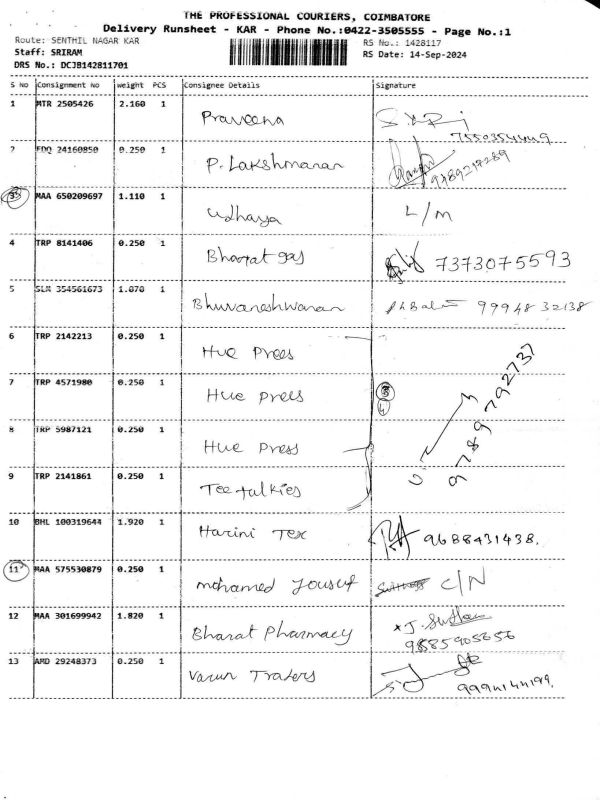 THE PROFESSIONAL COURIERS, COIMBATORE
Delivery Runsheet - KAR - Phone No.:0422-3505555 - Page No.:1
Route: SENTHIL NAGAR KAR RS No.: 1428117
Staff: SRIRAM RS Date: 14-Sep-2024
DRS No.: DCJB142811701
S No Consignment No weight PCS Consignee Details Signature
1 MTR 2505426 2.160 1 Praveena
7550354449
2 EDQ 24160850 0.250 1 P. Lakshmanan
9789217289
3 MAA 650209697 1.110 1 Udhaya L/M
4 TRP 8141406 0.250 1 Bharat gas 7373075593
5 SLM 354561673 1.070 1 Bhuvaneshwaran 9994832138
6 TRP 2142213 0.250 1 Hue Prees
7 TRP 4571980 0.250 1 Hue Prees
9789792737
8 TRP 5987121 0.250 1 Hue Press
9 TRP 2141861 0.250 1 Tee talkies
10 BHL 100319644 1.920 1 Harini Tex 9688431438.
11 MAA 575530879 0.250 1 Mohamed Yousuf C/N
12 MAA 301699942 1.820 1 Bharat Pharmacy
9885905656
13 AMD 29248373 0.250 1 Varun Traders